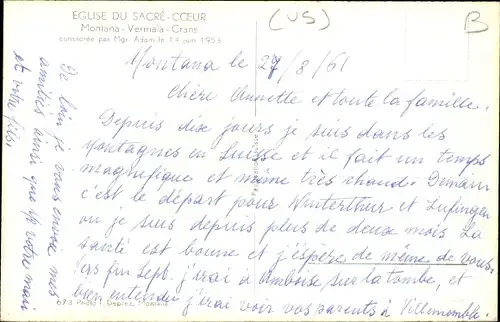 EGLISE DU SACRÉ-CŒUR
Montana - Vermala - Crans
consacrée par Mgr. Adam le 14 juin 1953
(VS)
B
Montana le 27/8/61
Chère Annette et toute la famille.
Depuis dix jours je suis dans les
montagnes en Suisse et il fait un temps
magnifique et même très chaud. Demain
c'est le départ pour Winterthur et Lufingen
ou je suis depuis plus de deux mois La
santé est bonne et j'espère de même de vous.
Vers fin sept. j'irai à Amboise sur la tombe, et
bien entendu j'irai voir vos parents à Villemomble.
De loin je vous envoie mes
amitiés ainsi que à votre mari
et votre fils.
Photo Deprez, Montana